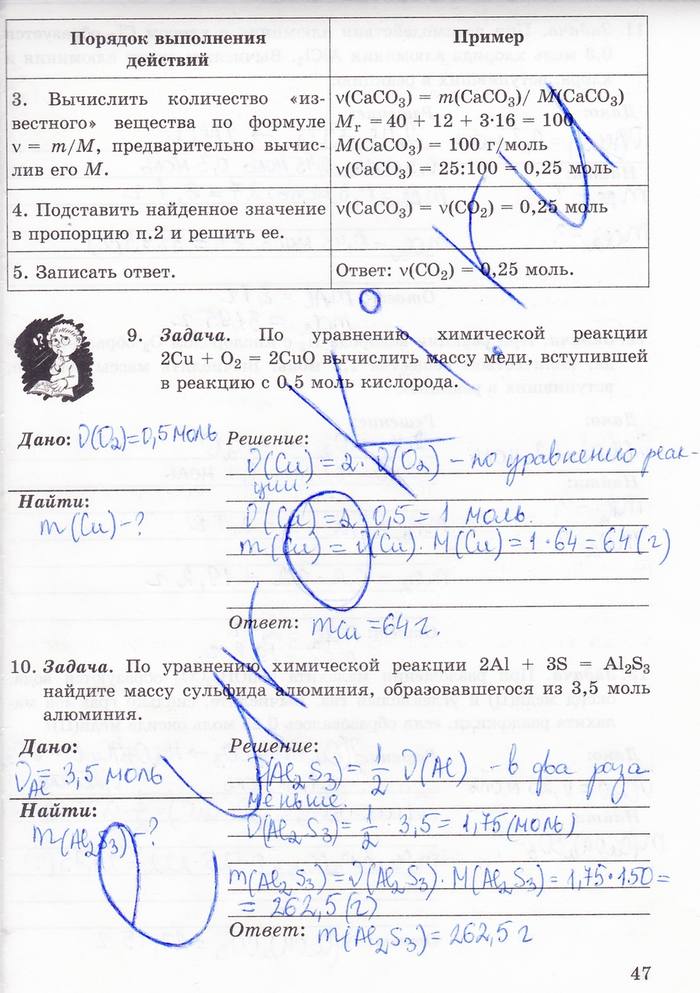 Порядок выполнения действий
Пример
3. Вычислить количество «из-
вестного» вещества по формуле
ν = m/M, предварительно вычис-
лив его M.
ν(CaCO₃) = m(CaCO₃)/ M(CaCO₃)
Mᵣ = 40 + 12 + 3·16 = 100
M(CaCO₃) = 100 г/моль
ν(CaCO₃) = 25:100 = 0,25 моль
4. Подставить найденное значение
в пропорцию п.2 и решить ее.
ν(CaCO₃) = ν(CO₂) = 0,25 моль
5. Записать ответ.
Ответ: ν(CO₂) = 0,25 моль.
9. Задача. По уравнению химической реакции
2Cu + O₂ = 2CuO вычислить массу меди, вступившей
в реакцию с 0,5 моль кислорода.
Дано: ν(O₂)=0,5 моль
Найти:
m(Cu)-?
Решение:
ν(Cu) = 2 · ν(O₂) – по уравнению реак-
ции.
ν(Cu) = 2 · 0,5 = 1 моль.
m(Cu) = ν(Cu) · M(Cu) = 1 · 64 = 64 (г)
Ответ: mCu = 64 г.
10. Задача. По уравнению химической реакции 2Al + 3S = Al₂S₃
найдите массу сульфида алюминия, образовавшегося из 3,5 моль
алюминия.
Дано:
νAl = 3,5 моль
Найти:
m(Al₂S₃)-?
Решение:
ν(Al₂S₃) = 1/2 ν(Al) – в два раза
меньше.
ν(Al₂S₃) = 1/2 · 3,5 = 1,75 (моль)
m(Al₂S₃) = ν(Al₂S₃) · M(Al₂S₃) = 1,75 · 150 =
= 262,5 (г)
Ответ: m(Al₂S₃) = 262,5 г
47